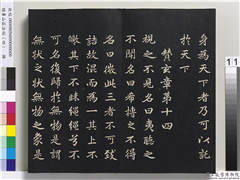 身為天下者乃可以託
於天下
贊玄章第十四
視之不見名曰夷聽之
不聞名曰希搏之不得
名曰微此三者不可致
詰故混而為一其上不
皦其下不昧繩繩兮不
可名復歸於無物是謂
無狀之狀無物之象是
11